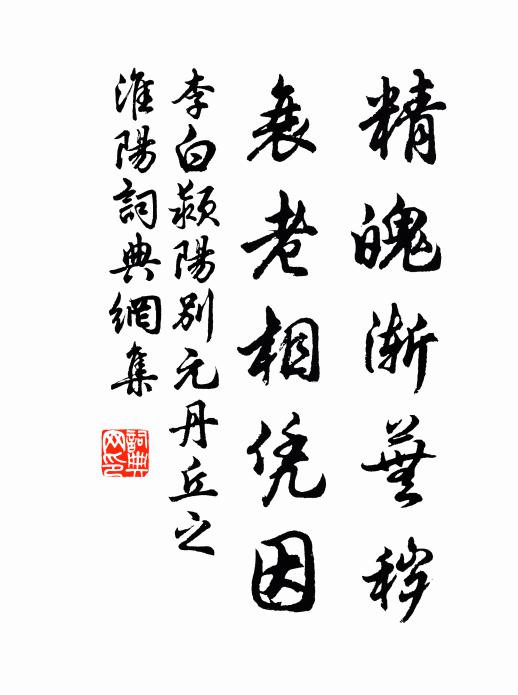 精魄漸蕪穢
衰老相凭因
李白潁陽別元丹丘之
淮陽詞典網集
詞典網印